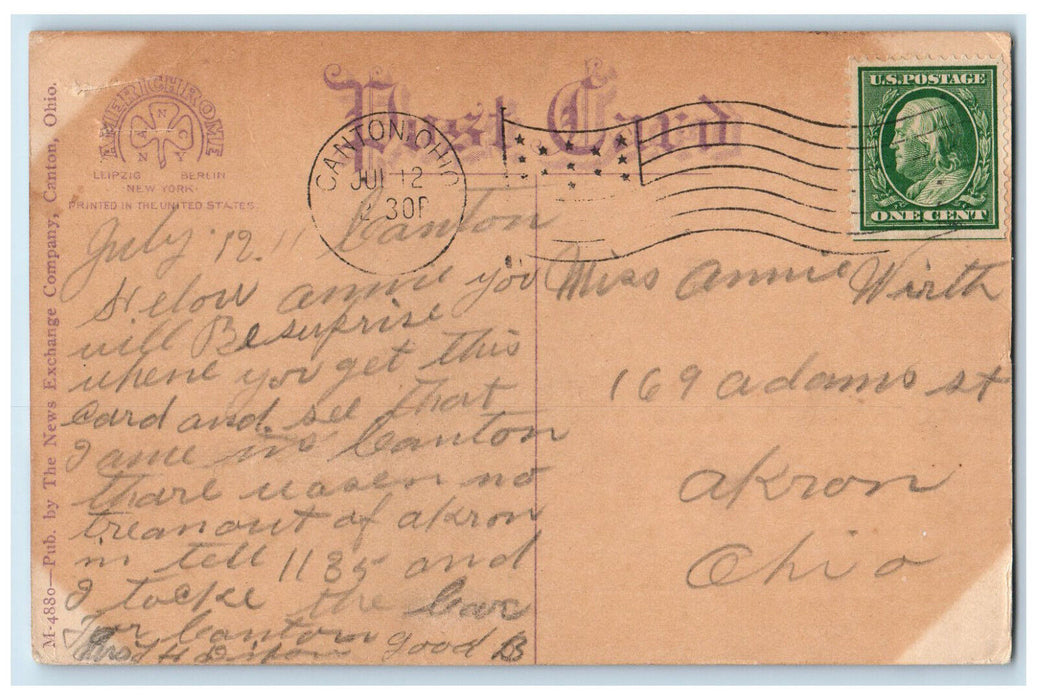 AMERICHROME
ANCNY
LEIPZIG BERLIN
NEW YORK
PRINTED IN THE UNITED STATES.
Post Card
CANTON, OHIO
JUL 12
2 30P
U.S. POSTAGE
ONE CENT
M-4880—Pub. by The News Exchange Company, Canton, Ohio.
July 12. Canton
Helow annie you
will Be surprise
whene you get this
Card and see that
I ame in Canton
thare wasen no
treanout of akron
in tell 1135 and
I tocke the Car
For Canton good B
Mrs
Miss Annie Wirth
169 adams st
akron
Ohio